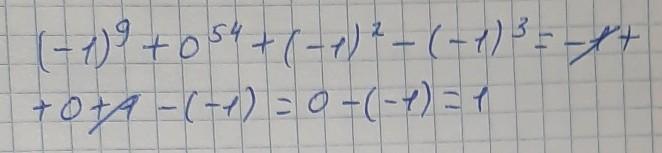 (-1)⁹ + 0⁵⁴ + (-1)² - (-1)³ = -1 +
+ 0 + 1 - (-1) = 0 - (-1) = 1